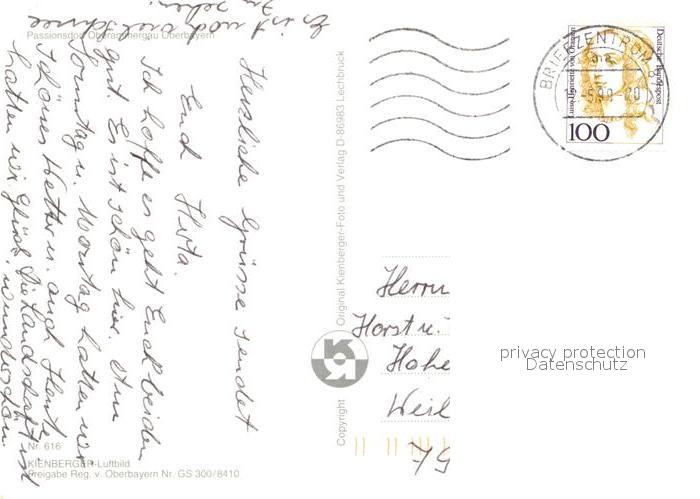 Es ist noch viel Schnee
zu sehen.
Passionsdorf Oberammergau Oberbayern
Herzliche Grüsse sendet
Euch Herta.
Ich hoffe es geht Euch beiden
gut. Es ist schön hier. Am
Sonntag u. Montag hatten wir
schönes Wetter u. auch Heute
hatten wir Glück. Die Landschaft ist
wunderschön.
Nr. 616
KIENBERGER-Luftbild
Freigabe Reg. v. Oberbayern Nr. GS 300/8410
Copyright
Original Kienberger-Foto und Verlag D-86983 Lechbruck
BRIEFZENTRUM
Deutsche Bundespost
100
Herrn
Horst u.
Hohe
Weil
79
privacy protection
Datenschutz